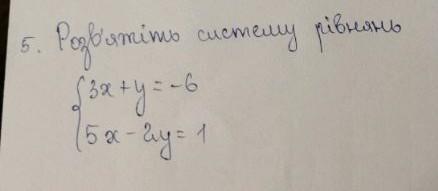 5. Розв'яжіть систему рівнянь
3x + y = -6
5x - 2y = 1